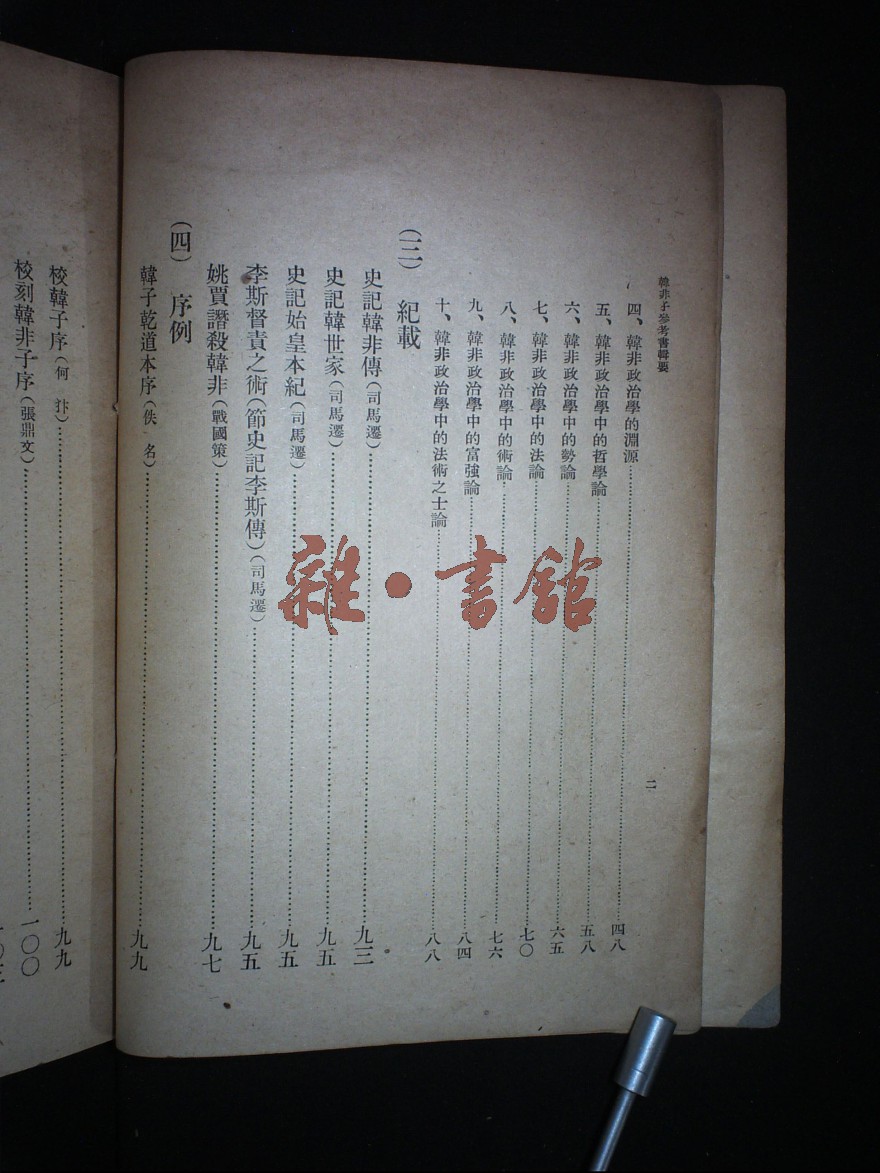 韓非子參考書輯要
二
四、韓非政治學的淵源……四八
五、韓非政治學中的哲學論……五八
六、韓非政治學中的勢論……六五
七、韓非政治學中的法論……七〇
八、韓非政治學中的術論……七六
九、韓非政治學中的富強論……八四
十、韓非政治學中的法術之士論……八八
（三）紀載
史記韓非傳（司馬遷）……九三
史記韓世家（司馬遷）……九五
史記始皇本紀（司馬遷）……九五
李斯督責之術（節史記李斯傳）（司馬遷）……九五
姚賈譖殺韓非（戰國策）……九七
（四）序例
韓子乾道本序（佚名）……九九
校韓子序（何犿）……九九
校刻韓非子序（張鼎文）……一〇〇
雜·書館